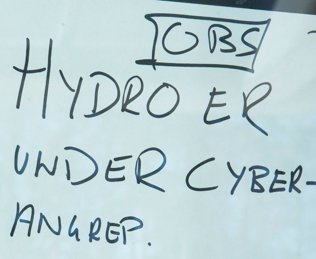 OBS
HYDRO ER
UNDER CYBER-
ANGREP.